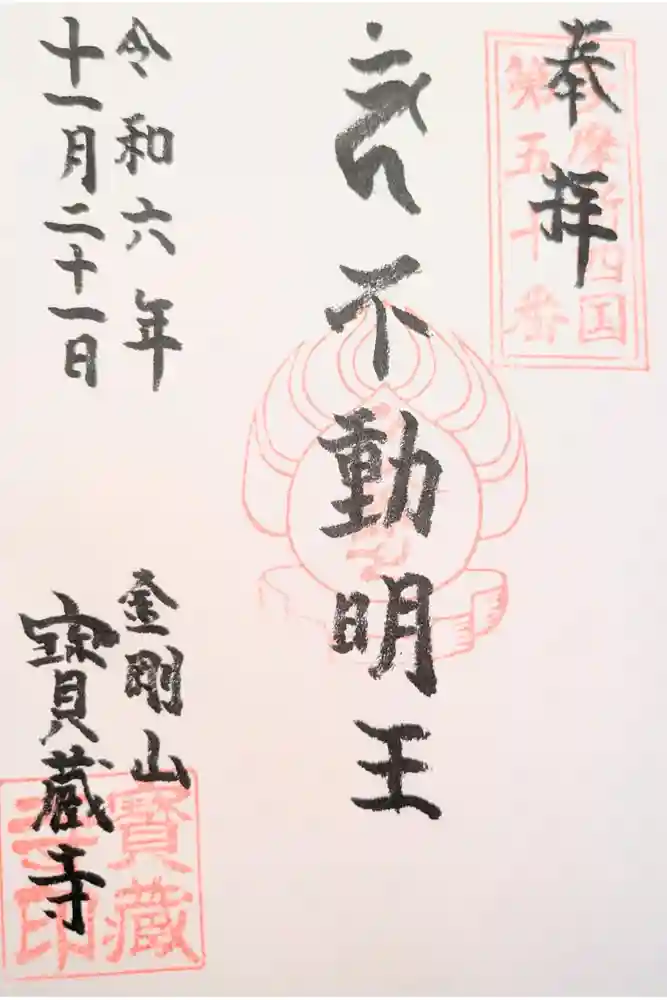 奉拝
多摩新四国
第五十番
不動明王
令和六年
十一月二十一日
金剛山
寳蔵寺
寳蔵
寺印